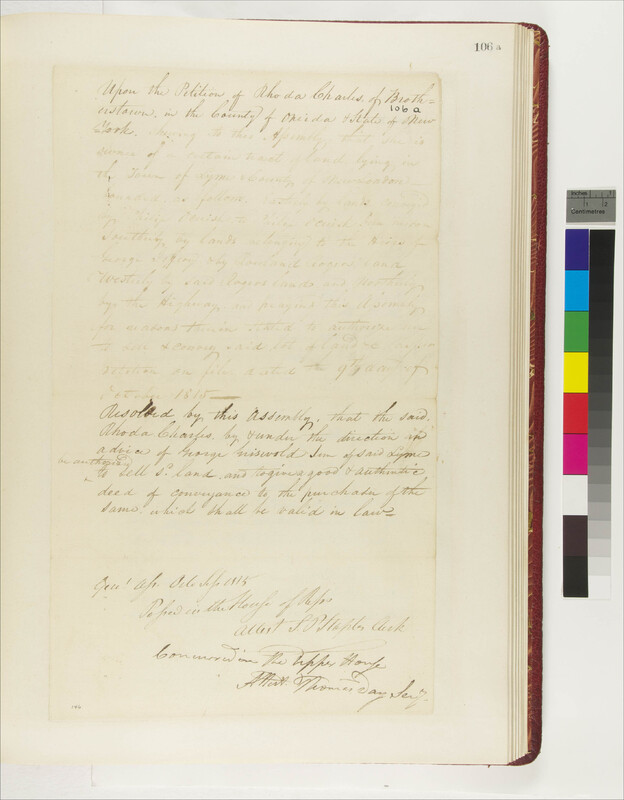 106 a
Upon the Petition of Rhoda Charles, of Broth=
106 a
erstown, in the County of Oneida & State of New
York. shewing to this Assembly, that she is
owner of a certain tract of land lying in
the Town of Lyme & County of New London
bounded as follows,
Southerly by lands belonging to the Heirs of
George
Westerly by said Rogers land, and northerly
by the Highway, praying this Assembly
for reasons therein stated to authorize
to sell & convey said lot of land
Petition on file dated the 9th day of
October 1815
Resolved by this Assembly, that the said
Rhoda Charles, by & under the direction &
advice of George Griswold Jun of said Lyme
be authorized
to Sell sd. Land, and to give a good & authentic
deed of conveyance to the purchaser of the
same, which shall be valid in law
Genl. Ass. Oct. Sess. 1815
Passed in the House of Reps
Attest S. P. Staples Clerk
Concurred in The Upper House
Attest Thomas Day Secy.
106
Inches 1 2
Centimetres